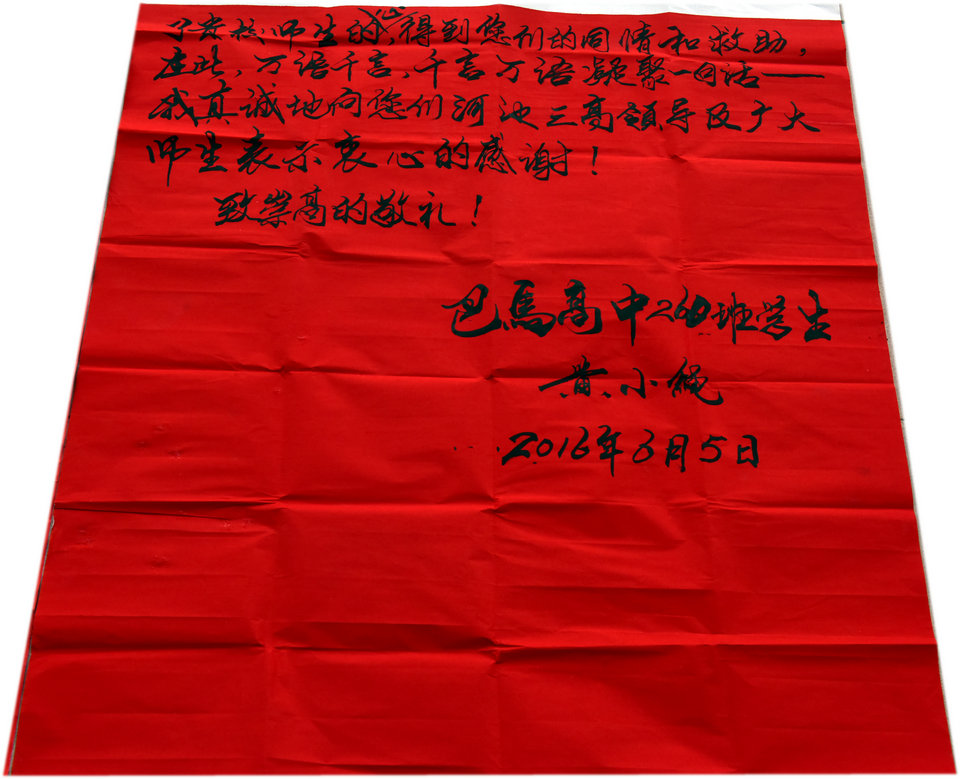 了贵校师生的心,得到您们的同情和救助,
在此,万语千言、千言万语凝聚一句话——
我真诚地向您们河池三高领导及广大
师生表示衷心的感谢!
致崇高的敬礼!
巴馬高中260班学生
黄小绳
2016年3月5日